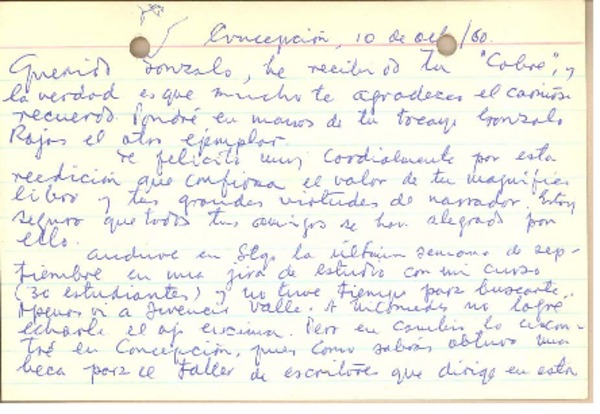 Concepción, 10 de oct/60.
Querido Gonzalo, he recibido tu "Cobre", y
la verdad es que mucho te agradezco el cariñoso
recuerdo. Pondré en manos de tu tocayo Gonzalo
Rojas el otro ejemplar.
Te felicito muy cordialmente por esta
reedición que confirma el valor de tu magnífico
libro y tus grandes virtudes de narrador. Estoy
seguro que todos tus amigos se han alegrado por
ello.
Anduve en Stgo la última semana de sep-
tiembre en una jira de estudio con mi curso
(30 estudiantes) y no tuve tiempo para buscarte.
Apenas vi a Juvencio Valle. A no logré
echarle el ojo encima. Pero en cambio lo encon-
tré en Concepción, pues como sabrás obtuvo una
beca para el Taller de escritores que dirige en esta